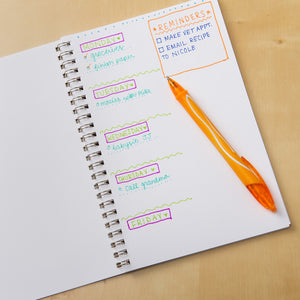 MONDAY
groceries
finish paper
TUESDAY
WEDNESDAY
babysit JJ
THURSDAY
call grandma
FRIDAY
REMINDERS
MAKE VET APPT.
EMAIL RECIPE
TO NICOLE